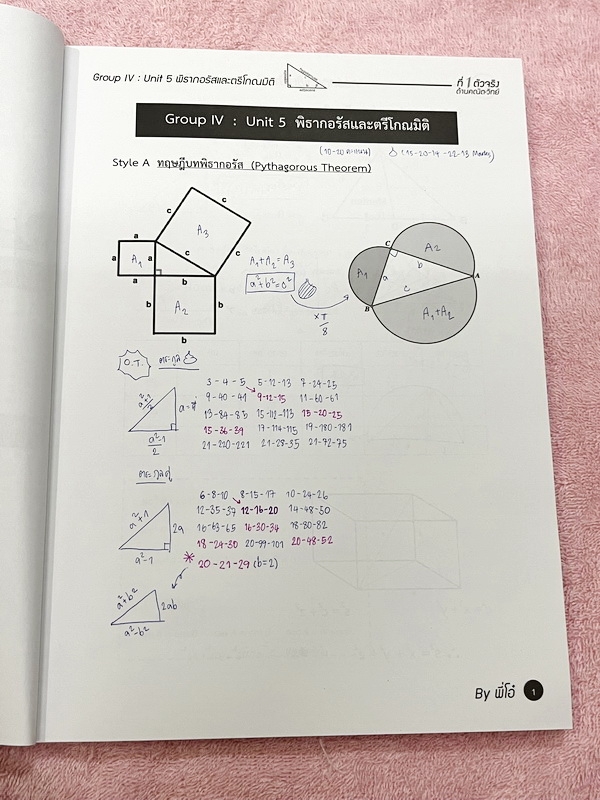 Group IV : Unit 5 พีธากอรัสและตรีโกณมิติ
ที่ 1 ตัวจริง
ด้านคณิตวิทย์
Group IV : Unit 5 พีธากอรัสและตรีโกณมิติ
(10-20 คะแนน) (15-20-14-22-13 Marks)
Style A ทฤษฎีบทพีธากอรัส (Pythagorous Theorem)
c
c A₃ c
c
a
a A₁ a
a b
b A₂ b
b
A₁+A₂ = A₃
a²+b² = c²
× π/8
A₁ A₂
C b A
a c
B
A₁+A₂
O.T. ตระกูล
a²+1/2
a = คี่
a²-1/2
3-4-5 5-12-13 7-24-25
9-40-41 9-12-15 11-60-61
13-84-85 15-112-113 15-20-25
15-36-39 17-144-145 19-180-181
21-220-221 21-28-35 21-72-75
ตระกูลคู่
a²+1
2a
a²-1
6-8-10 8-15-17 10-24-26
12-35-37 12-16-20 14-48-50
16-63-65 16-30-34 18-80-82
18-24-30 20-99-101 20-48-52
* 20-21-29 (b=2)
a²+b²
2ab
a²-b²
By พี่โอ๋ 1